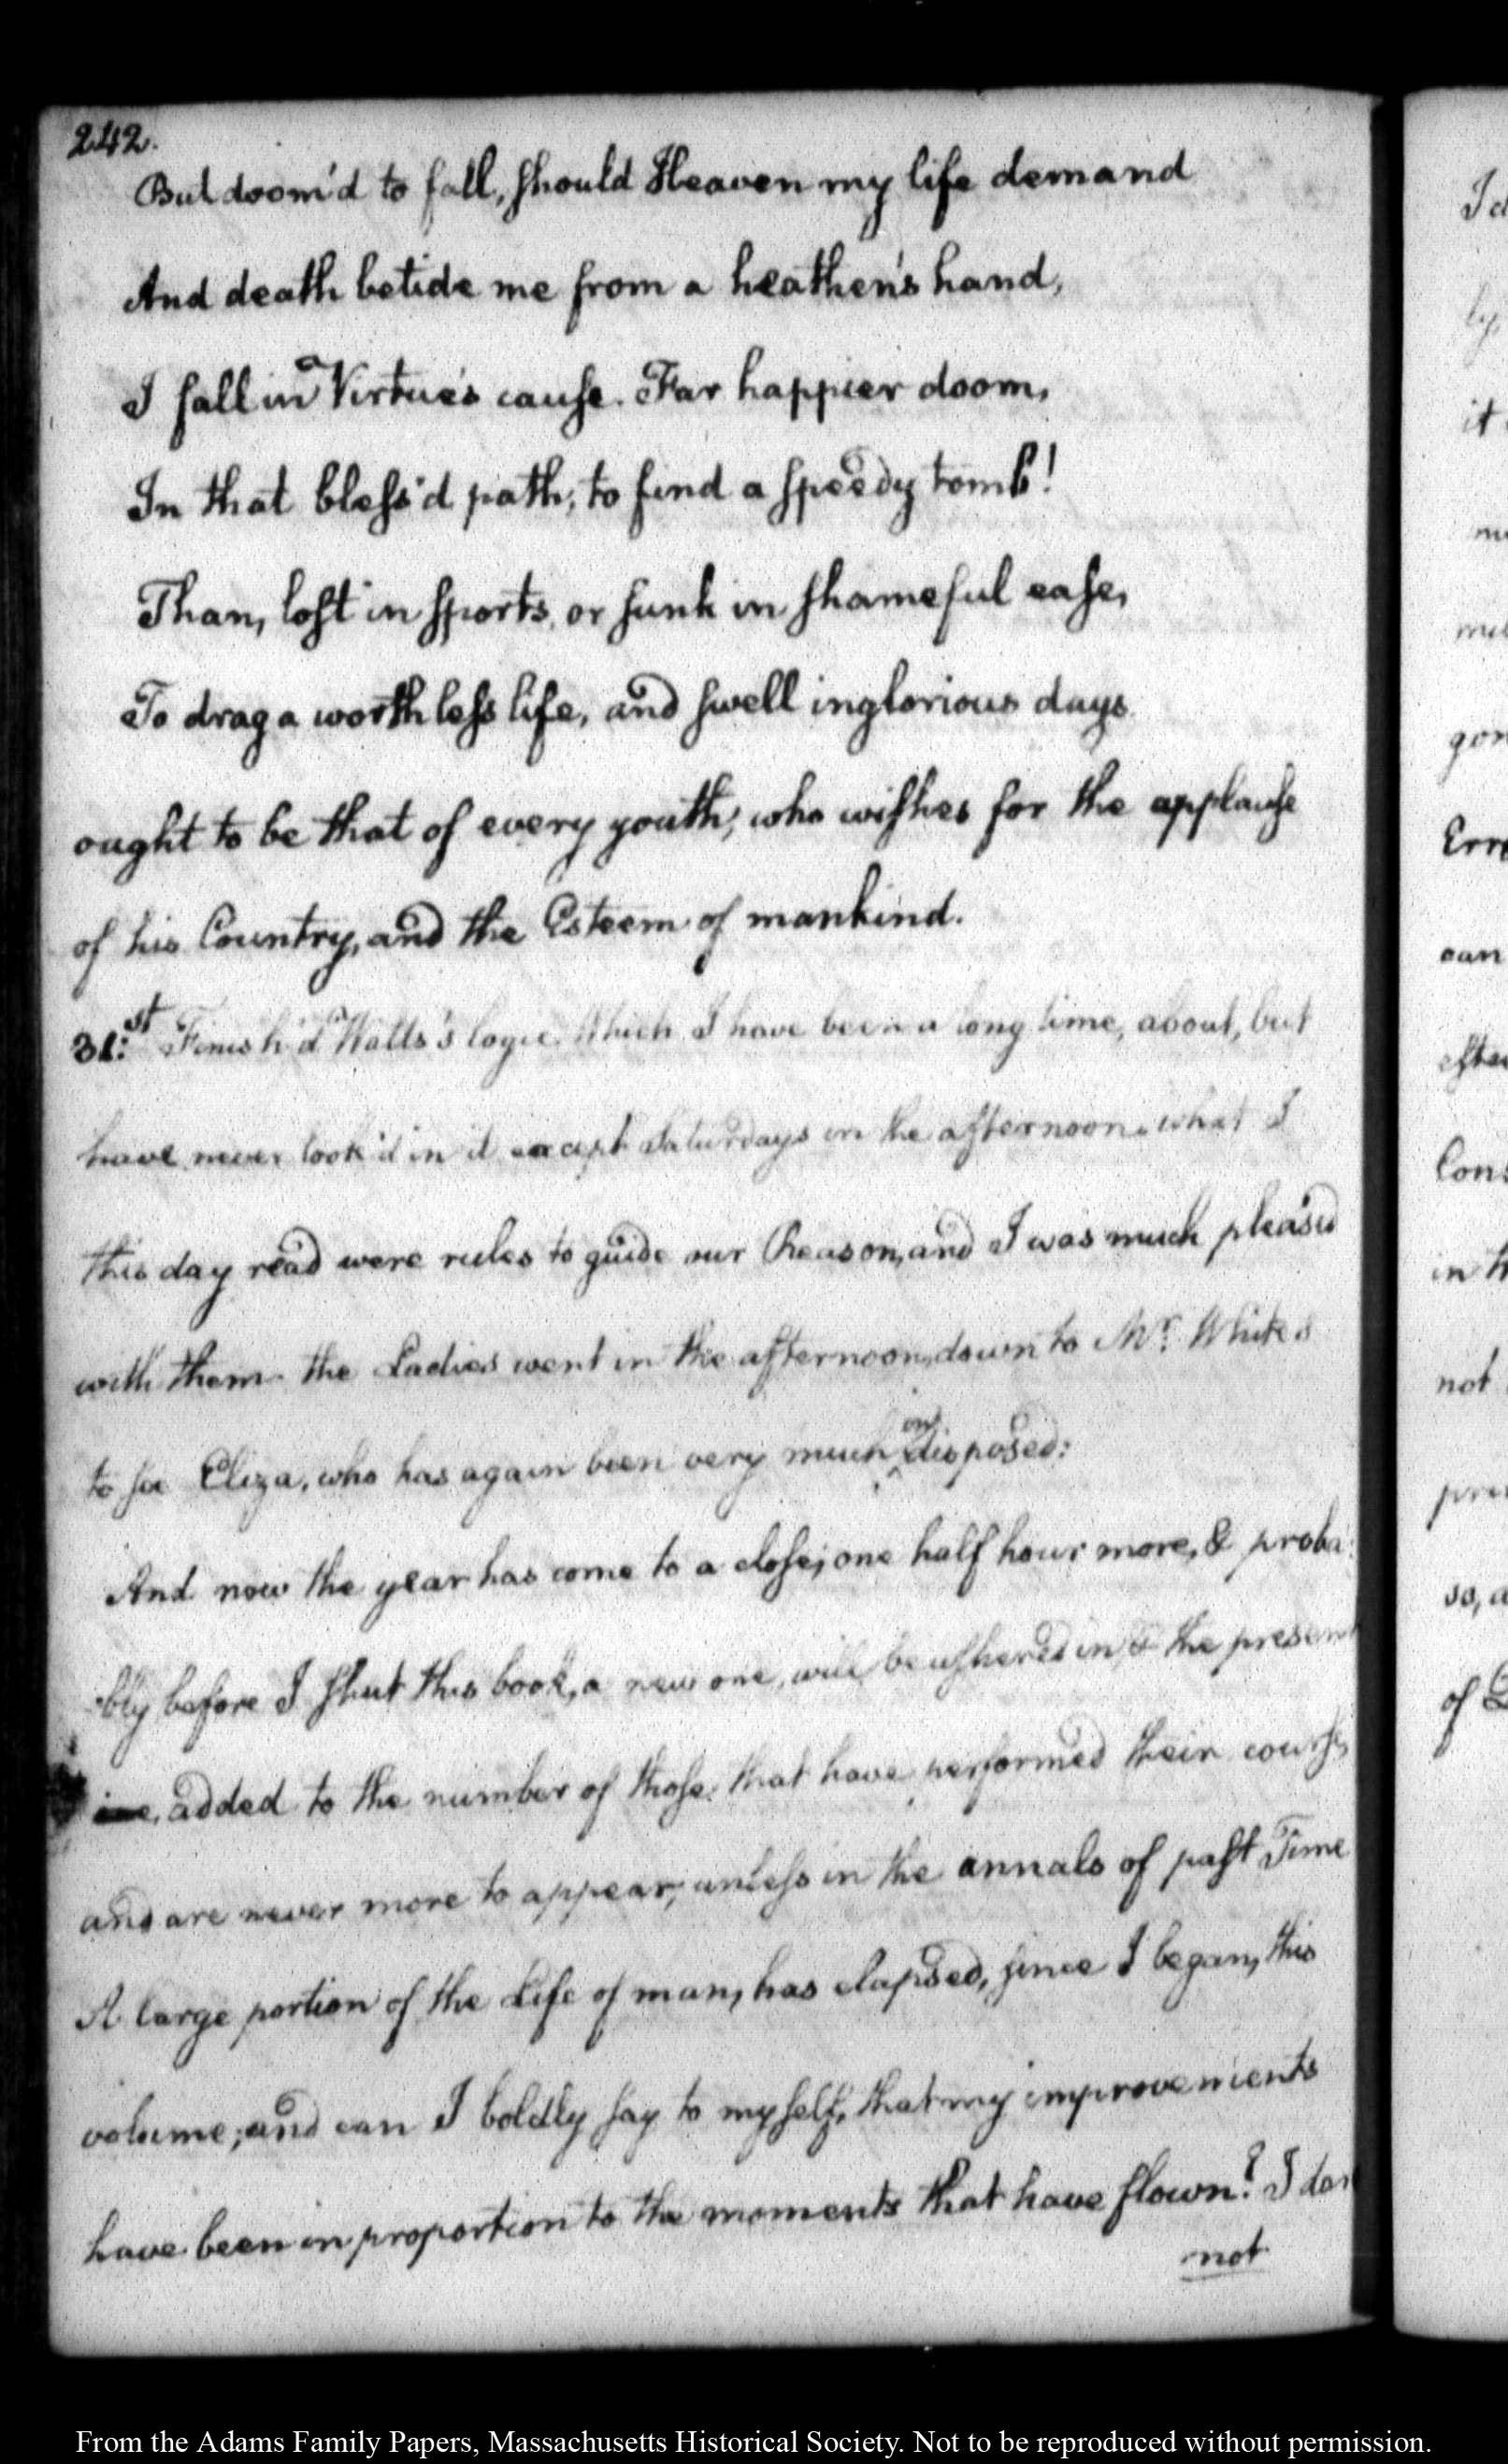 242.
But doom'd to fall, should Heaven my life demand
And death betide me from a heathen's hand,
I fall in Virtue's cause. Far happier doom,
In that bless'd path, to find a speedy tomb!
Than, lost in sports, or sunk in shameful ease,
To drag a worthless life, and swell inglorious days
ought to be that of every youth, who wishes for the applause
of his Country, and the Esteem of mankind.
31:st Finish'd Watts's logic. Which I have been a long time, about, but
have never look'd in it except Saturdays in the afternoon. what I
this day read were rules to guide our Reason, and I was much pleased
with them. the Ladies went in the afternoon, down to Mr. White's
to see Eliza, who has again been very much indisposed:
And now the year has come to a close; one half hour more, & proba
bly before I shut this book, a new one, will be ushered in, & the present
one, added to the number of those, that have performed their course,
and are never more to appear, unless in the annals of past Time
A large portion of the Life of man, has elapsed, since I began, this
volume; and can I boldly say to myself, that my improvements
have been in proportion to the moments that have flown? I dare
not
I d
ly,
it
gon
Erro
can
Cons
in h
not
pre
so, a
of
From the Adams Family Papers, Massachusetts Historical Society. Not to be reproduced without permission.